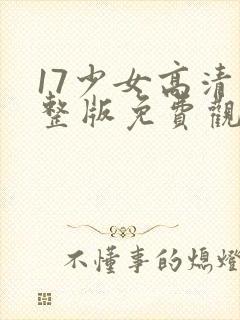 17少女高清
整版免費觀
不懂事的熄燈